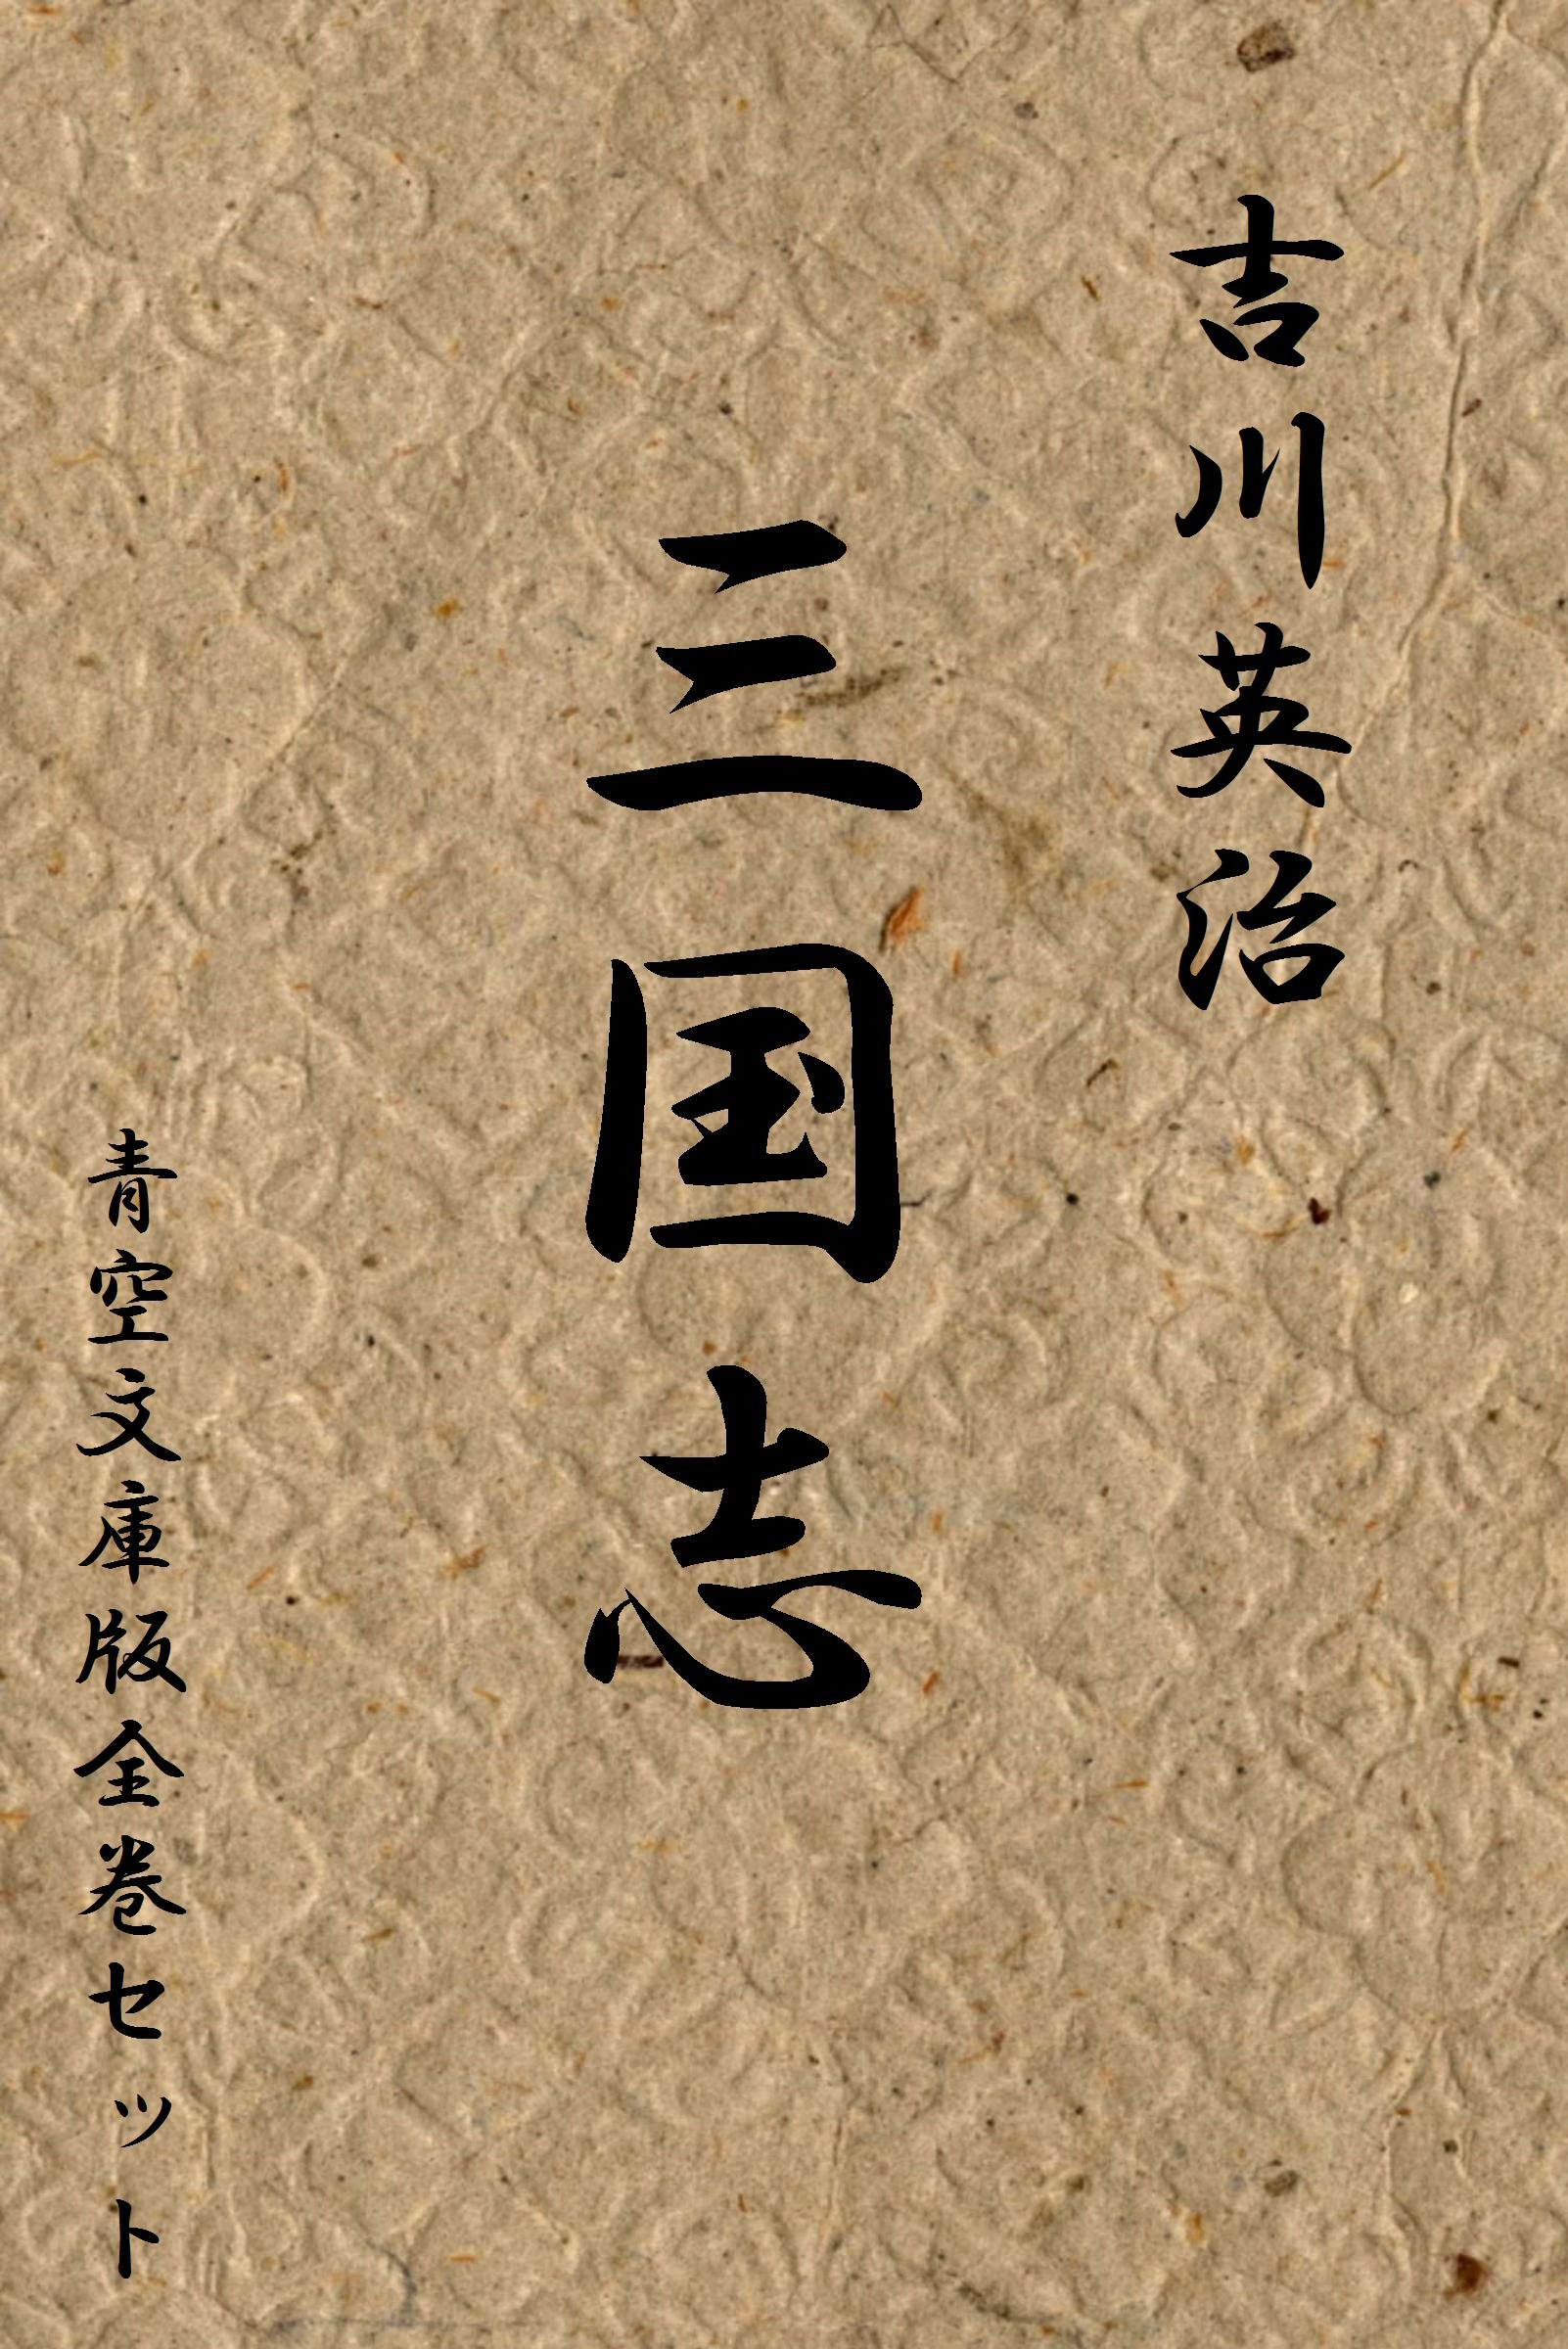 吉川英治
三国志
青空文庫版全巻セット